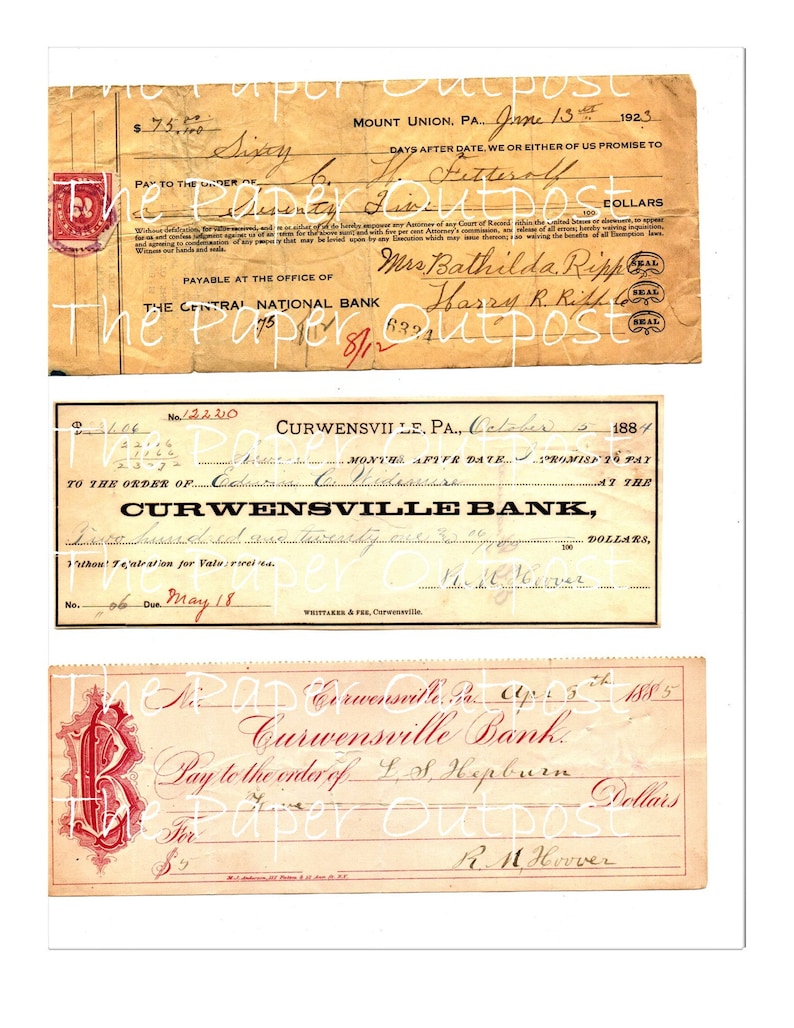 The Paper Outpost
$ 75.00/100 MOUNT UNION, PA., June 13th 1923
Sixty DAYS AFTER DATE, WE OR EITHER OF US PROMISE TO
PAY TO THE ORDER OF C. W. Fetterolf
The Paper Outpost
Seventy Five 100 DOLLARS
Without defalcation, for value received, and we or either of us do hereby empower any Attorney of any Court of Record within the United States or elsewhere, to appear
for us and confess judgment against us of any term for the above sum; and with five per cent Attorney's commission, and release of all errors; hereby waiving inquisition,
and agreeing to condemnation of any property that may be levied upon by any Execution which may issue thereon; also waiving the benefits of all Exemption laws.
Witness our hands and seals.
Mrs. Bathilda Ripple SEAL
PAYABLE AT THE OFFICE OF
Harry R. Ripple SEAL
THE CENTRAL NATIONAL BANK
The Paper Outpost
75 8/12 8/12 6334 SEAL
No. 12220
CURWENSVILLE, PA., October 5 1884
The Paper Outpost
MONTHS AFTER DATE I PROMISE TO PAY
TO THE ORDER OF Edwin C. Widemire AT THE
CURWENSVILLE BANK,
Two hundred and twenty one & 06/100 100 DOLLARS,
The Paper Outpost
Without Defalcation for Value received.
R. M. Hoover
No. 06 Due. May 18
WHITTAKER & FEE, Curwensville.
The Paper Outpost
No. Curwensville, Pa. Apr 5th 1885
Curwensville Bank.
Pay to the order of L. S. Hepburn
Five Dollars
The Paper Outpost
For
$ 5 R. M. Hoover